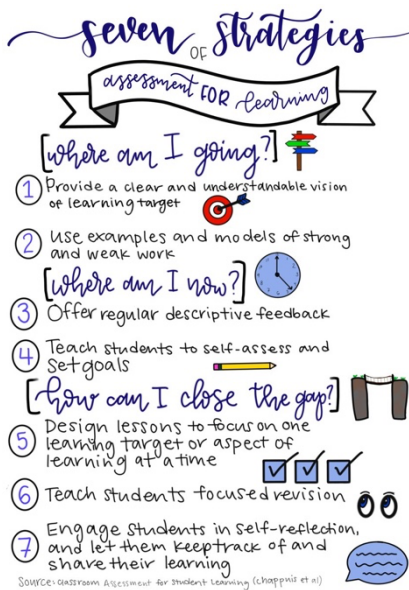 seven OF strategies
assessment FOR learning
[where am I going?]
1 Provide a clear and understandable vision
of learning target
2 Use examples and models of strong
and weak work
[where am I now?]
3 Offer regular descriptive feedback
4 Teach students to self-assess and
set goals
[how can I close the gap?]
5 Design lessons to focus on one
learning target or aspect of
learning at a time
6 Teach students focused revision
7 Engage students in self-reflection,
and let them keep track of and
share their learning
Source: Classroom Assessment for Student Learning (chappuis et al)